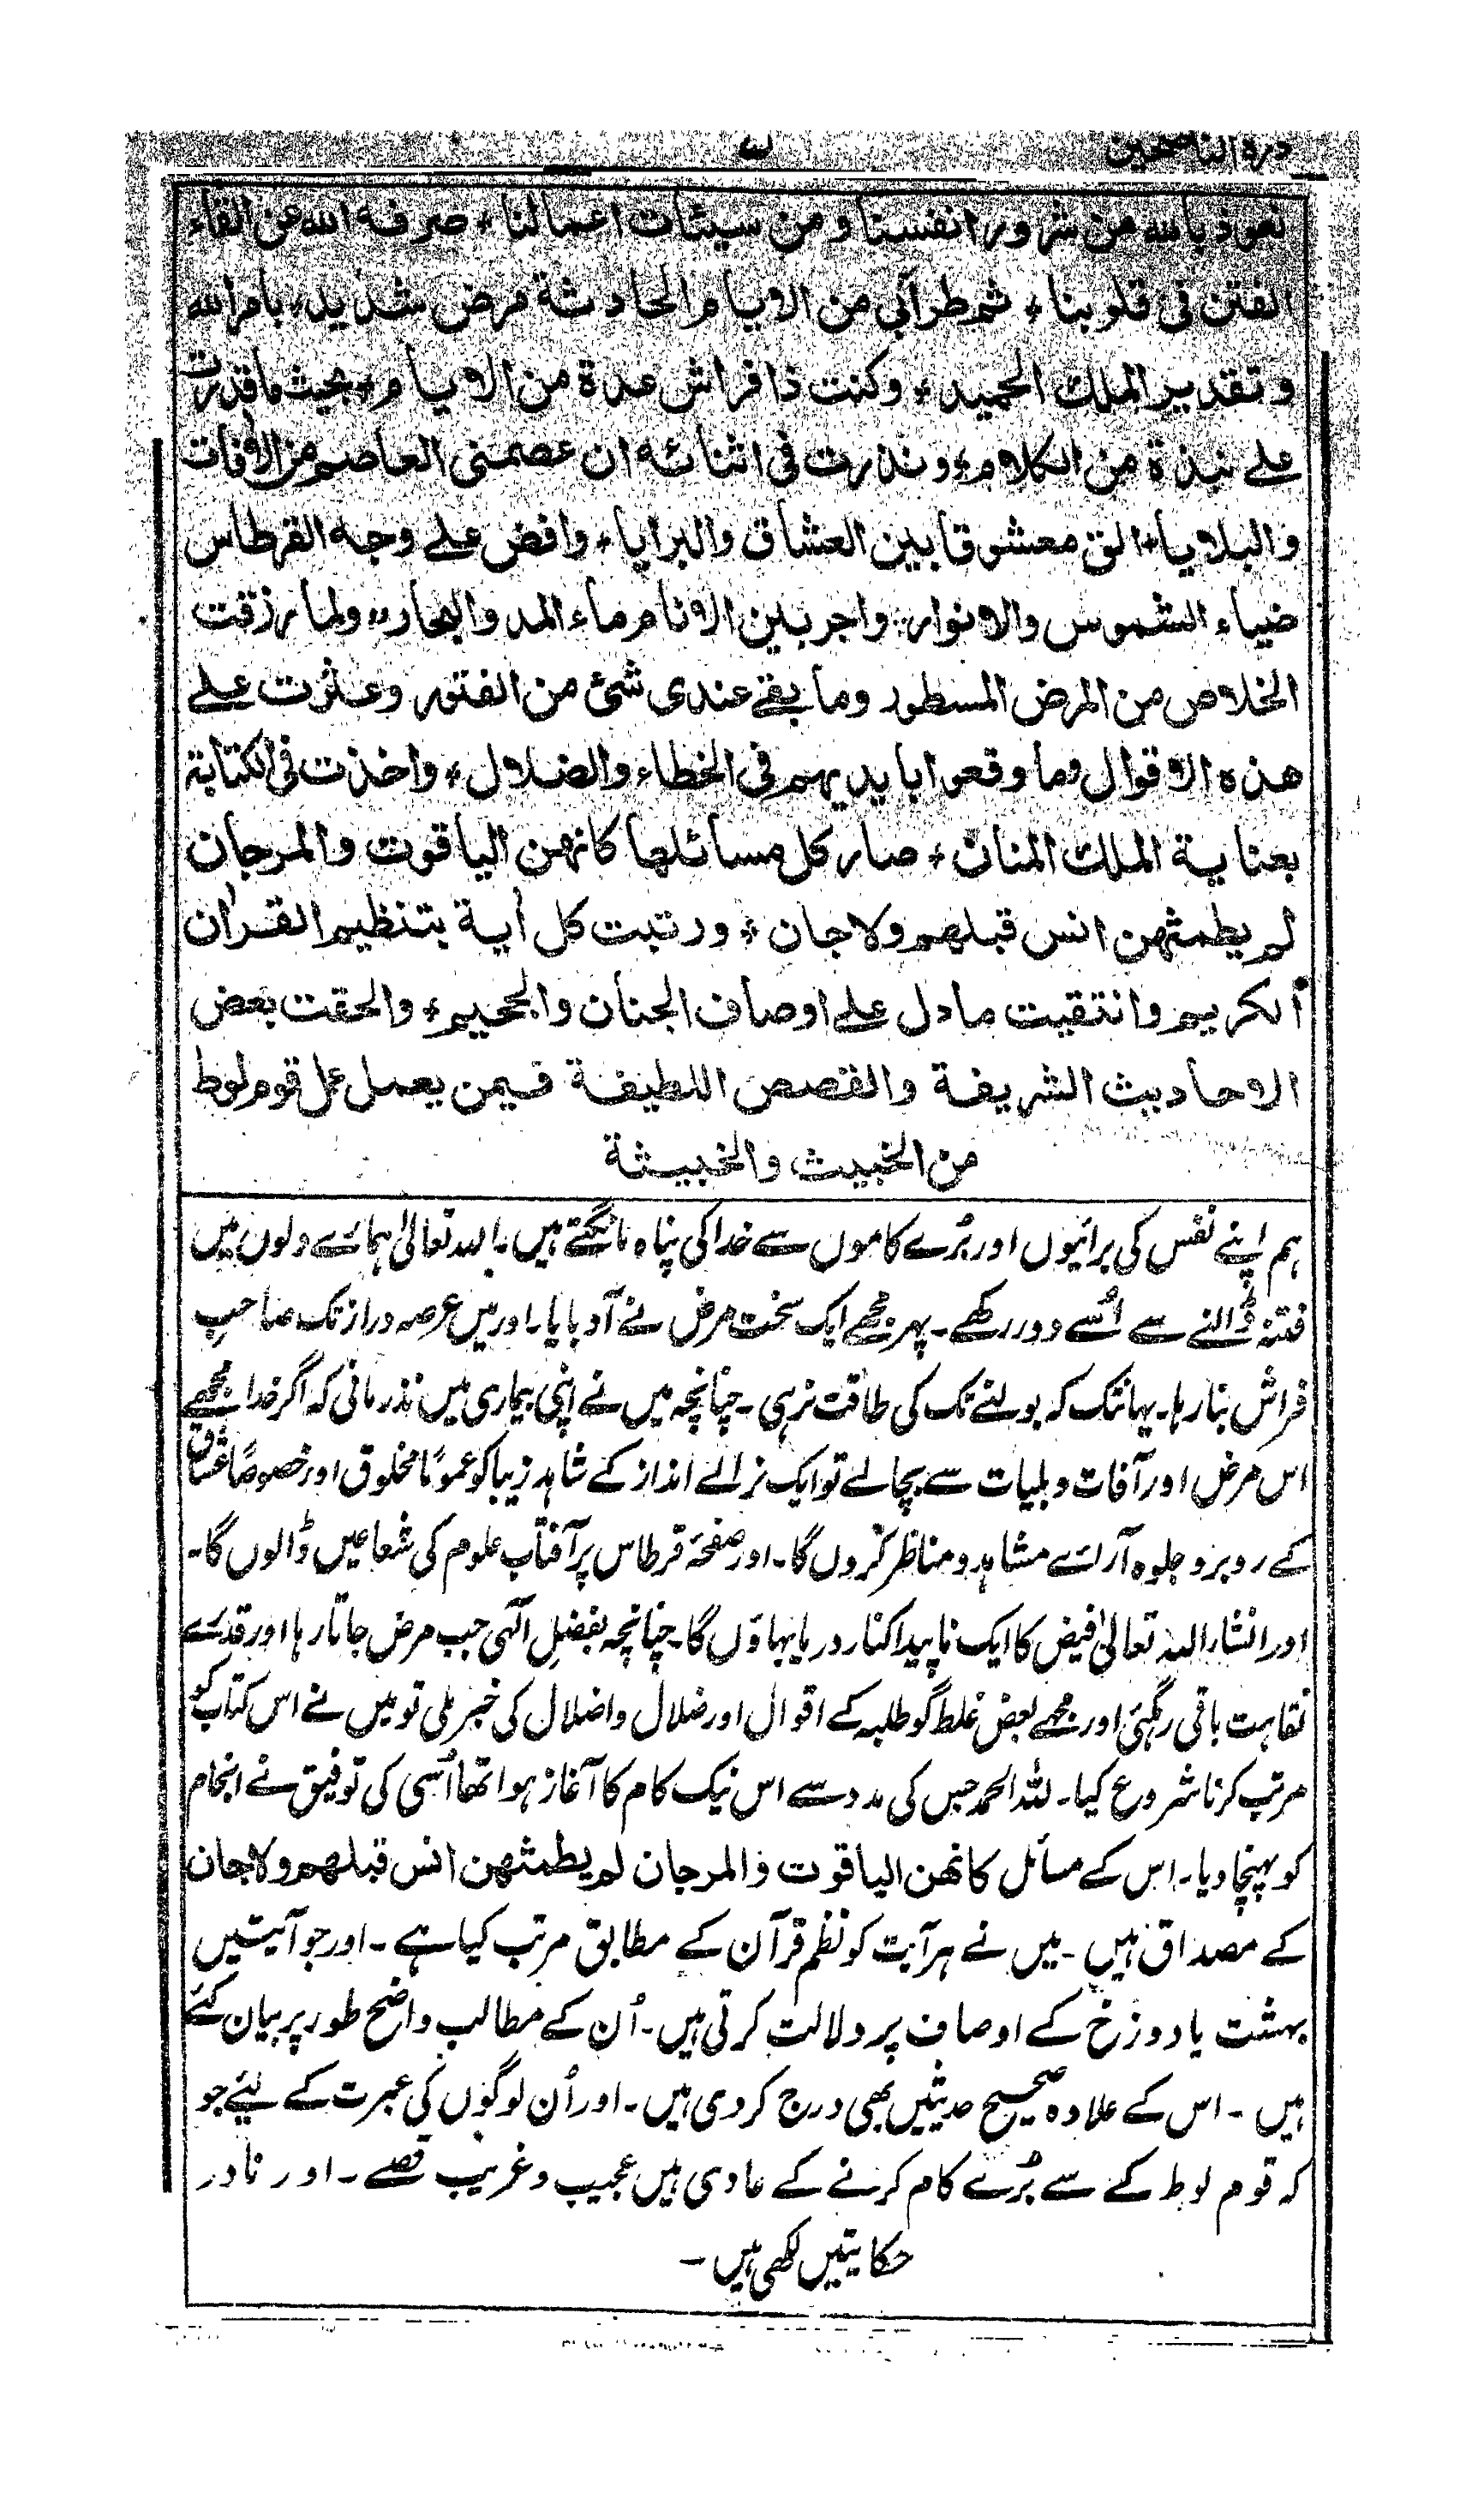 درة الناصحين
نعوذ بالله من شرور انفسنا ومن سيئات اعمالنا ٭ صرفه الله عن القاء
الفتن فى قلوبنا ٭ ثم طرأبى من الايام الحادثة مرض شديد ٭ بامر الله
وتقدير الملك الحميد ٭ وكنت ذا فراش عدة من الايام ٭ بحيث ما قدرت
على نبذة من الكلام ٭ ونذرت فى اثنائه ان عصمنى العاصم من الافات
والبلايا ٭ الق معشوقا بين العشاق والبرايا ٭ وافض على وجه القرطاس
ضياء الشموس والانوار ٭ واجر بين الانام ماء المد والبحار ٭ ولما رزقت
الخلاص من المرض المسطور وما بقى عندى شئ من الفتور وعثرت على
هذه الاقوال وما وقعوا بايديهم فى الخطاء والضلال ٭ واخذت فى الكتابة
بعناية الملك المنان ٭ صار كل مسائلها كانهن الياقوت والمرجان
لم يطمثهن انس قبلهم ولا جان ٭ ورتبت كل أية بتنظيم القرأن
الكريم وانتقيت ما دل على اوصاف الجنان والجحيم ٭ والحقت بعض
الاحاديث الشريفة والقصص اللطيفة فيمن يعمل عمل قوم لوط
من الخبيث والخبيثة
ہم اپنے نفس کی برائیوں اور بُرے کاموں سے خدا کی پناہ مانگتے ہیں۔ اللہ تعالیٰ ہمارے دلوں میں
فتنہ ڈالنے سے اُسے دور رکھے۔ پہر مجھے ایک سخت مرض نے آدبایا۔ اور میں عرصہ دراز تک صاحبِ
فراش بنا رہا۔ یہانتک کہ بولنے تک کی طاقت نرہی۔ چنانچہ میں نے اپنی بیماری میں نذر مانی کہ اگر خدا مجھے
اس مرض اور آفات و بلیات سے بچالے تو ایک نرالے انداز کے شاہد زیبا کو عموماً مخلوق اور خصوصاً عشاق
کے روبرو جلوہ آرائے مشاہد و مناظر کروں گا۔ اور صفحۂ قرطاس پر آفتاب علوم کی شعاعیں ڈالوں گا۔
اور انشاء اللہ تعالیٰ فیض کا ایک ناپیدا کنار دریا بہاؤں گا۔ چنانچہ بفضلِ الٰہی جب مرض جاتا رہا اور قدرے
نقاہت باقی رہگئی اور مجھے بعض غلط گو طلبہ کے اقوال اور ضلال و اضلال کی خبر ملی تو میں نے اس کتاب کو
مرتب کرنا شروع کیا۔ للہ الحمد جس کی مدد سے اس نیک کام کا آغاز ہوا تھا اُسی کی توفیق نے انجام
کو پہنچا دیا۔ اس کے مسائل كانهن الياقوت والمرجان لم يطمثهن انس قبلهم ولا جان
کے مصداق ہیں۔ میں نے ہر آیت کو نظم قرآن کے مطابق مرتب کیا ہے۔ اور جو آیتیں
بہشت یا دوزخ کے اوصاف پر دلالت کرتی ہیں۔ اُن کے مطالب واضح طور پر بیان کئے
ہیں۔ اس کے علاوہ صحیح حدیثیں بھی درج کر دی ہیں۔ اور اُن لوگوں کی عبرت کے لیئے جو
کہ قوم لوط کے سے بُرے کام کرنے کے عادی ہیں عجیب و غریب قصے۔ اور نادر
حکایتیں لکھی ہیں۔